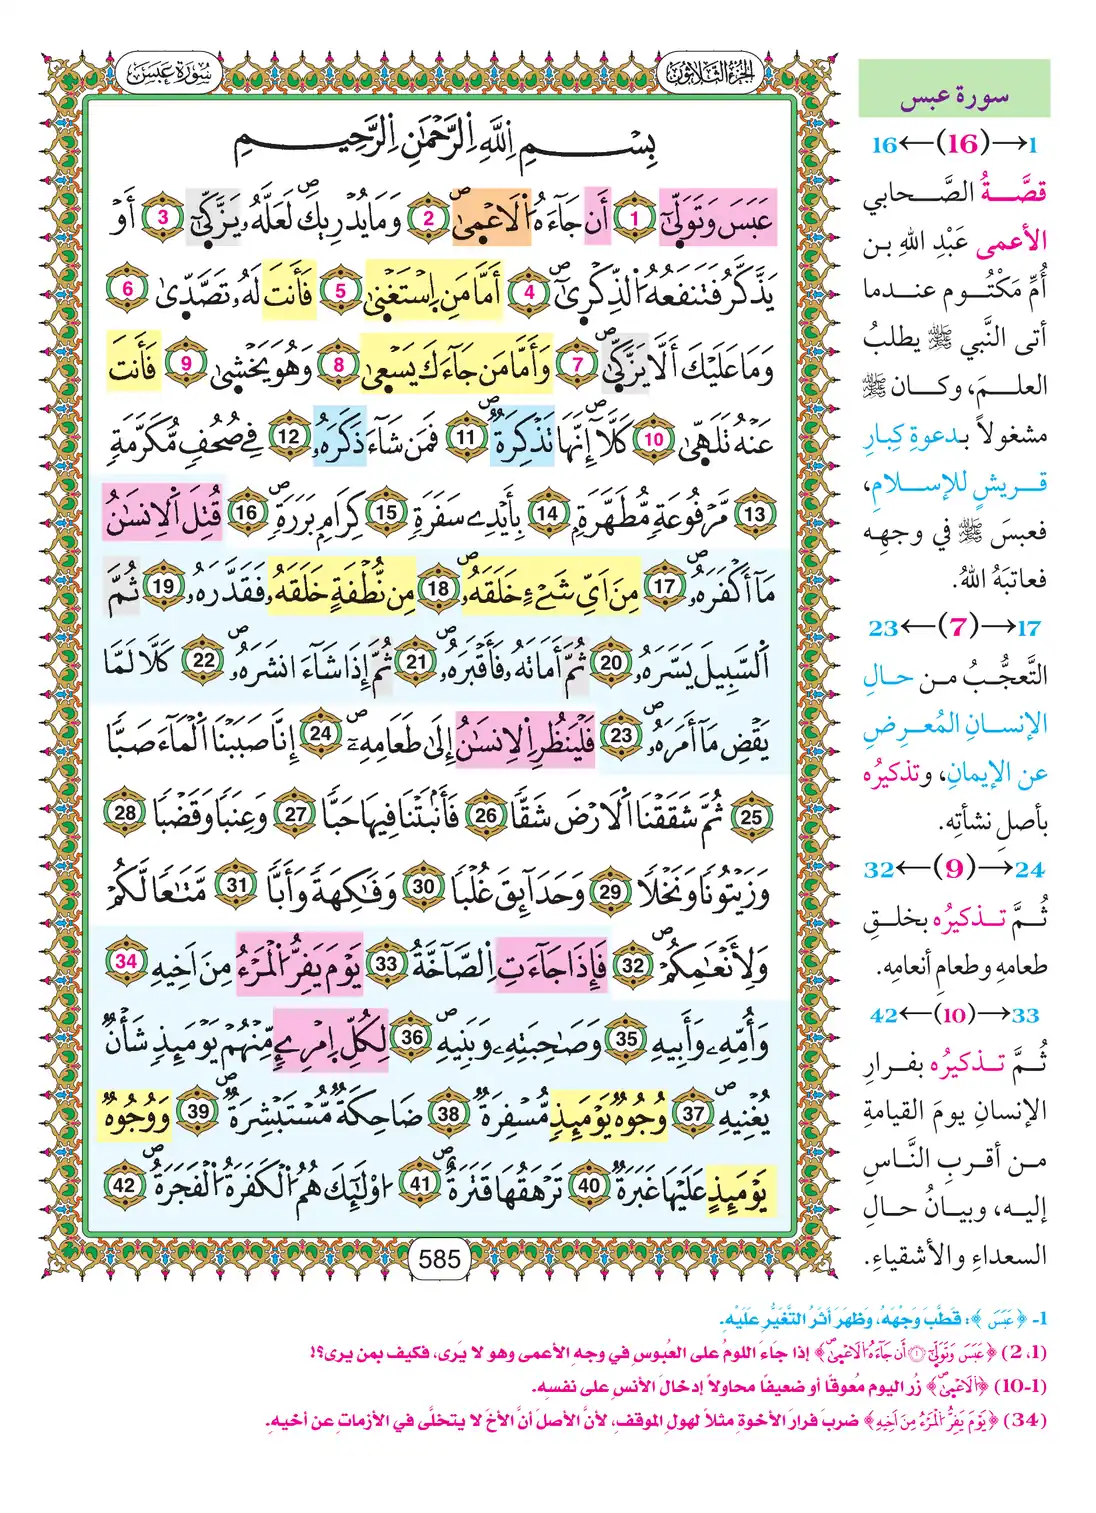 سُورَةُ عَبَسَ
الجُزْءُ الثَّلَاثُونَ
بِسْمِ اِ۬للَّهِ اِ۬لرَّحْمَٰنِ اِ۬لرَّحِيمِ
عَبَسَ وَتَوَلّ۪ىٰٓ 1 أَن جَآءَهُ اُ۬لَاعْم۪ىٰۖ 2 وَمَا يُدْرِيكَ لَعَلَّهُۥ يَزَّكّ۪ىٰٓ 3 أَوْ
يَذَّكَّرُ فَتَنفَعُهُ اُ۬لذِّكْر۪ىٰٓۖ 4 أَمَّا مَنِ اِ۪سْتَغْن۪ىٰ 5 فَأَنتَ لَهُۥ تَصَّدّ۪ىٰ 6
وَمَا عَلَيْكَ أَلَّا يَزَّكّ۪ىٰۖ 7 وَأَمَّا مَن جَآءَكَ يَسْع۪ىٰ 8 وَهُوَ يَخْش۪ىٰ 9 فَأَنتَ
عَنْهُ تَلَهّ۪ىٰ 10 كَلَّآ إِنَّهَا تَذْكِرَةٞۖ 11 فَمَن شَآءَ ذَكَرَهُۥ 12 فِے صُحُفٖ مُّكَرَّمَةٖ
13 مَّرْفُوعَةٖ مُّطَهَّرَةِۢ 14 بِأَيْدِے سَفَرَةٖ 15 كِرَامِۢ بَرَرَةٖۖ 16 قُتِلَ اَ۬لِانسَٰنُ
مَآ أَكْفَرَهُۥۖ 17 مِنَ اَيِّ شَےْءٍ خَلَقَهُۥۖ 18 مِن نُّطْفَةٍ خَلَقَهُۥ فَقَدَّرَهُۥ 19 ثُمَّ
اَ۬لسَّبِيلَ يَسَّرَهُۥ 20 ثُمَّ أَمَاتَهُۥ فَأَقْبَرَهُۥ 21 ثُمَّ إِذَا شَآءَ انشَرَهُۥۖ 22 كَلَّا لَمَّا
يَقْضِ مَآ أَمَرَهُۥۖ 23 فَلْيَنظُرِ اِ۬لِانسَٰنُ إِلَىٰ طَعَامِهِۦٓۖ 24 إِنَّا صَبَبْنَا اَ۬لْمَآءَ صَبّاٗ
25 ثُمَّ شَقَقْنَا اَ۬لَارْضَ شَقّاٗ 26 فَأَنۢبَتْنَا فِيهَا حَبّاٗ 27 وَعِنَباٗ وَقَضْباٗ 28
وَزَيْتُوناٗ وَنَخْلاٗ 29 وَحَدَآئِقَ غُلْباٗ 30 وَفَٰكِهَةٗ وَأَبّاٗ 31 مَّتَٰعاٗ لَّكُمْ
وَلِأَنْعَٰمِكُمْۖ 32 فَإِذَا جَآءَتِ اِ۬لصَّآخَّةُ 33 يَوْمَ يَفِرُّ اُ۬لْمَرْءُ مِنَ اَخِيهِ 34
وَأُمِّهِۦ وَأَبِيهِ 35 وَصَٰحِبَتِهِۦ وَبَنِيهِۖ 36 لِكُلِّ اِ۪مْرِےٕٖ مِّنْهُمْ يَوْمَئِذٖ شَأْنٞ
يُغْنِيهِۖ 37 وُجُوهٞ يَوْمَئِذٖ مُّسْفِرَةٞ 38 ضَاحِكَةٞ مُّسْتَبْشِرَةٞۖ 39 وَوُجُوهٞ
يَوْمَئِذٍ عَلَيْهَا غَبَرَةٞ 40 تَرْهَقُهَا قَتَرَةٌۖ 41 ا۟وْلَٰٓئِكَ هُمُ اُ۬لْكَفَرَةُ اُ۬لْفَجَرَةُۖ 42
585
سورة عبس
1→(16)←16
قصَّةُ الصَّحابي
الأعمى عَبْدِ اللهِ بن
أُمِّ مَكْتُوم عندما
أتى النَّبي ﷺ يطلبُ
العلمَ، وكان ﷺ
مشغولاً بدعوةِ كِبارِ
قريشٍ للإسلامِ،
فعبسَ ﷺ في وجهِه
فعاتبَهُ اللهُ.
17→(7)←23
التَّعجُّبُ من حالِ
الإنسانِ المُعرِضِ
عن الإيمانِ، وتذكيرُه
بأصلِ نشأتِه.
24→(9)←32
ثُمَّ تذكيرُه بخلقِ
طعامِه وطعامِ أنعامِه.
33→(10)←42
ثُمَّ تذكيرُه بفرارِ
الإنسانِ يومَ القيامةِ
من أقربِ النَّاسِ
إليه، وبيانُ حالِ
السعداءِ والأشقياءِ.
1- ﴿عَبَسَ﴾: قَطَّبَ وَجْهَهُ، وَظَهَرَ أَثَرُ التَّغَيُّرِ عَلَيْهِ.
(1، 2) ﴿عَبَسَ وَتَوَلّ۪ىٰٓ ۝١ أَن جَآءَهُ اُ۬لَاعْم۪ىٰۖ﴾ إذا جَاءَ اللومُ على العُبوسِ في وجهِ الأعمى وهو لا يَرى، فكيف بمن يرى؟!
(1-10) ﴿اُ۬لَاعْم۪ىٰۖ﴾ زُر اليوم مُعوقًا أو ضعيفًا محاولاً إدخالَ الأنسِ على نفسِه.
(34) ﴿يَوْمَ يَفِرُّ اُ۬لْمَرْءُ مِنَ اَخِيهِ﴾ ضربَ فرارَ الأخوةِ مثلاً لهولِ الموقفِ، لأنَّ الأصلَ أنَّ الأخَ لا يتخلَّى في الأزماتِ عن أخيهِ.